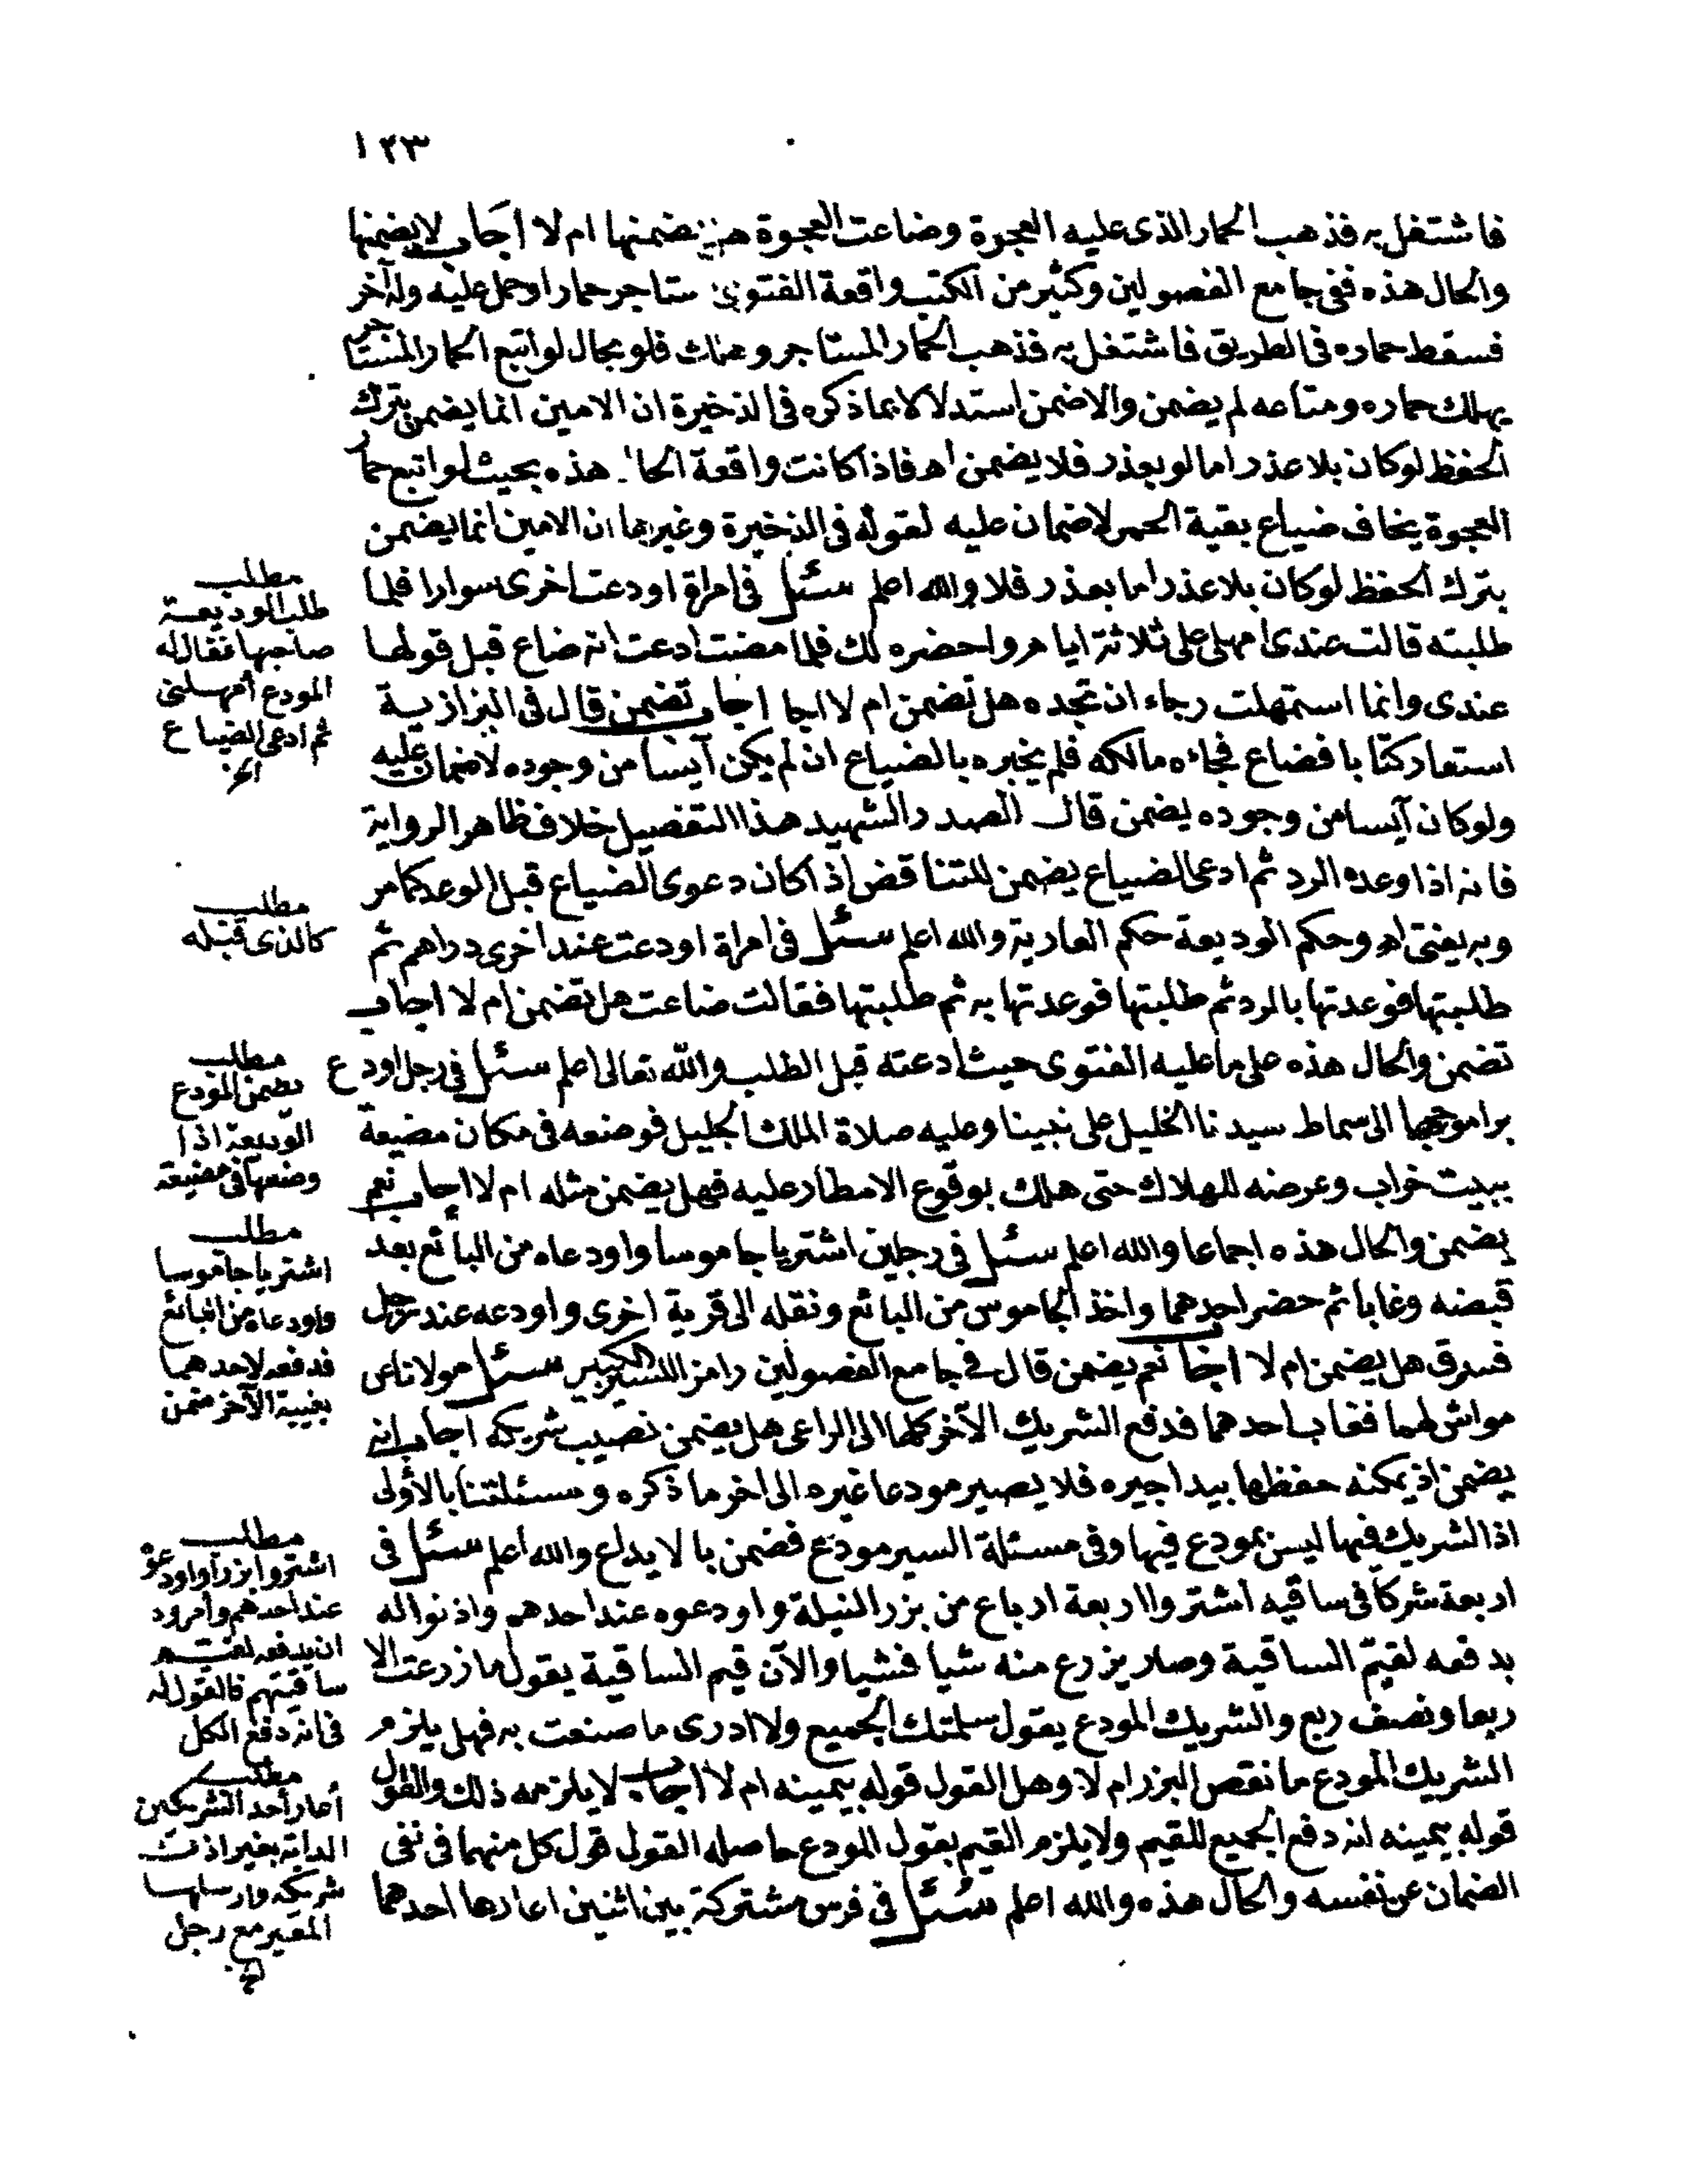 ١٢٣
فاشتغل به فذهب الحمار الذى عليه العجوة وضاعت العجوة هل يضمنها ام لا اجاب لا يضمنها
والحال هذه ففى جامع الفصولين وكثير من الكتب واقعة الفتوى ستاجر حمارا وحمل عليه وله آخر
فسقط حماره فى الطريق فاشتغل به فذهب الحمار المستاجر وهلك فلو بحال لو اتبع الحمار المستاجر
يهلك حماره ومتاعه لم يضمن والا ضمن استدلالا بما ذكره فى الذخيرة ان الامين انما يضمن بترك
الحفظ لوكان بلا عذر اما لو بعذر فلا يضمن اه فاذا كانت واقعة الحال هذه بحيث لو اتبع حمار
العجوة يخاف ضياع بقية الحمر لا ضمان عليه لقوله فى الذخيرة وغيرها ان الامين انما يضمن
بترك الحفظ لوكان بلا عذر اما بعذر فلا والله اعلم سئل فى امراة اودعت اخرى سوارا فلما
طلبته قالت عندى امهلى على ثلاثة ايام واحضره لك فلما مضت ادعت انه ضاع قبل قولها
عندى وانما استمهلت رجاء ان تجده هل تضمن ام لا اجاب تضمن قال فى البزازية
استعار كتابا فضاع فجاءه مالكه فلم يخبره بالضياع ان لم يكن آيسا من وجوده لا ضمان عليه
ولو كان آيسا من وجوده يضمن قال الصدر الشهيد هذا التفصيل خلاف ظاهر الرواية
فانه اذا وعده الرد ثم ادعى الضياع يضمن للتناقض اذا كان دعوى الضياع قبل الوعد كما مر
وبه يفتى اه وحكم الوديعة حكم العارية والله اعلم سئل فى امراة اودعت عند اخرى دراهم ثم
طلبتها فوعدتها بالرد ثم طلبتها فوعدتها به ثم طلبتها فقالت ضاعت هل تضمن ام لا اجاب
تضمن والحال هذه على ما عليه الفتوى حيث ادعته قبل الطلب والله تعالى اعلم سئل فى رجل اودع
برا موجها الى سماط سيدنا الخليل على نبينا وعليه صلاة الملك الجليل فوضعه فى مكان مضيعة
ببيت خراب وعرضه للهلاك حتى هلك بوقوع الامطار عليه فهل يضمن مثله ام لا اجاب نعم
يضمن والحال هذه اجماعا والله اعلم سئل فى رجلين اشتريا جاموسا واودعاه من البائع بعد
قبضه وغابا ثم حضر احدهما واخذ الجاموس من البائع ونقله الى قرية اخرى واودعه عند رجل
فسرق هل يضمن ام لا اجاب نعم يضمن قال فى جامع الفصولين رامزا للسير الكبير سئل مولانا عن
مواش لهما فغاب احدهما فدفع الشريك الآخر كلها الى الراعى هل يضمن نصيب شريكه اجاب انه
يضمن اذ يمكنه حفظها بيد اجيره فلا يصير مودعا غيره الى اخر ما ذكره ومسئلتنا بالأولى
اذ الشريك فيها ليس بمودع فيها وفى مسئلة السير مودع فضمن بالايداع والله اعلم سئل فى
اربعة شركا فى ساقيه اشتروا اربعة ارباع من بزر النيلة واودعوه عند احدهم واذنوا له
بدفعه لقيّم الساقية وصار يزرع منه شيا فشيا والآن قيم الساقية يقول ما زرعت الا
ربعا ونصف ربع والشريك المودع يقول سلمتك الجميع ولا ادرى ما صنعت به فهل يلزم
الشريك المودع ما نقص البزر ام لا وهل القول قوله بيمينه ام لا اجاب لا يلزمه ذلك والقول
قوله بيمينه انه دفع الجميع للقيم ولا يلزم القيم بقول المودع حاصله القول قول كل منهما فى نفى
الضمان عن نفسه والحال هذه والله اعلم سئل فى فرس مشتركة بين اثنين اعارها احدهما
مطلب
طلب الوديعة
صاحبها فقال له
المودع أمهلنى
ثم ادعى الضياع
الخ
مطلب
كالذى قبله
مطلب
يضمن المودع
الوديعة اذا
وضعها فى مضيعة
مطلب
اشتريا جاموسا
واودعاه من البائع
فدفعه لاحدهما
بغيبة الآخر ضمن
مطلب
اشتروا بزرا واودعو
عند احدهم وامروه
ان يدفعه لقيم
ساقيتهم فالقول له
فى انه دفع الكل
مطلب
أعار أحد الشريكين
الدابة بغير اذن
شريكه وارسلها
المعير مع رجل
الخ